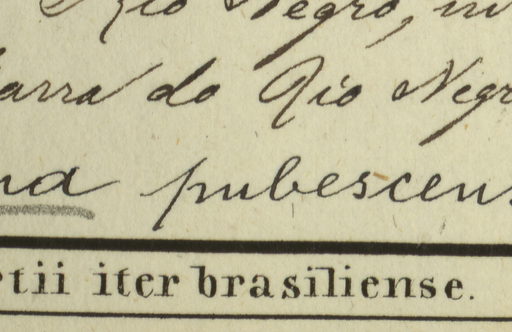 Rio Negro, in
arra do Rio Negr
na pubescens
rtii iter brasiliense.